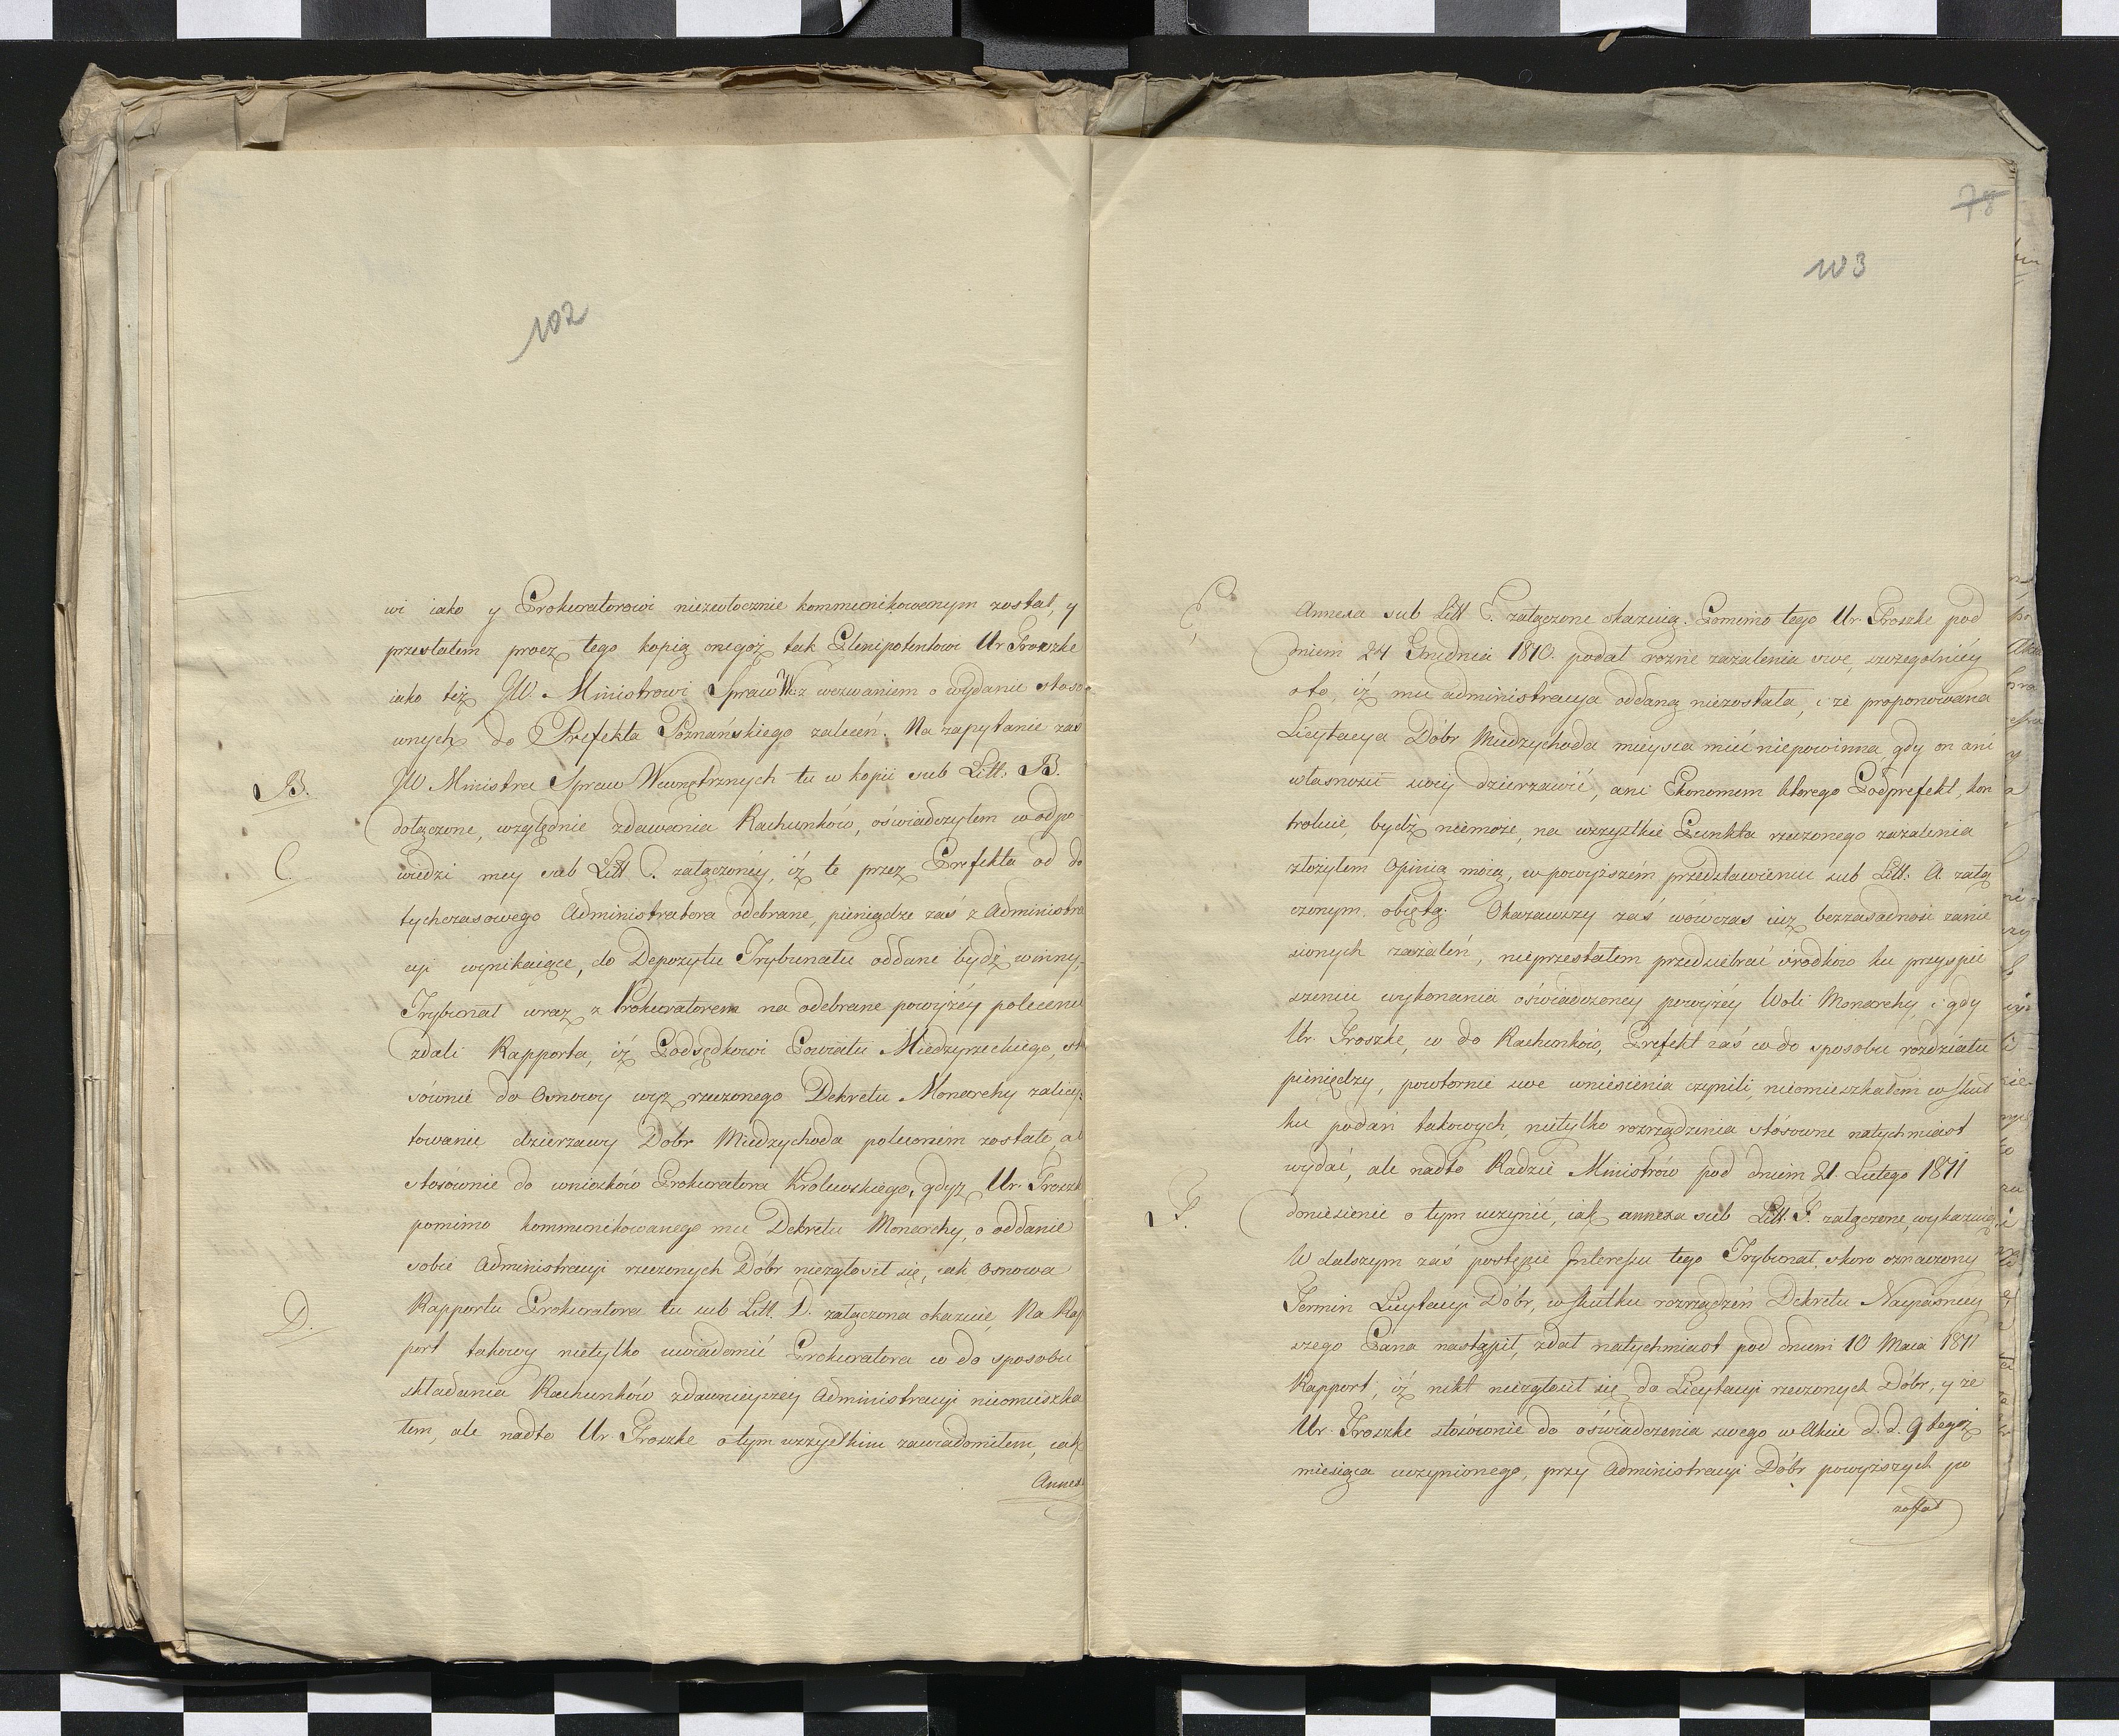 102
wi iako y Prokuratorowi niezwłocznie kommunikowanym został, y
przesłałem procz tego kopią onegoż tak Plenipotentowi Ur. Troszke
iako też JW. Ministrowi Spraw W. z wezwaniem o wydanie stoso
wnych do Prefekta Poznańskiego zaleceń. Na zapytanie zas
B. JW Ministra Spraw Wewnętrznych tu w kopii sub Litt. B.
dołączone, względnie zdawania Rachunków, oświadczyłem w odpo-
C. wiedzi mey sub Litt C. załączonéy, iż te przez Prefekta od do
tychczasowego Administratora odebrane, pieniądze zaś z Administra
cyi wynikaiące, do Depozytu Trybunału oddane bydź winny,
Trybunał wraz z Prokuratorem na odebrane powyżéy polecenie
zdali Rapporta, iż Podsędkowi Powiatu Miedzyrzeckiego, sto
sównie do Osnowy wyż rzeczonego Dekretu Monarchy zalicy-
towanie dzierzawy Dobr Miedzychoda poleconém zostało, a
stosównie do wniosków Prokuratora Krolewskiego, gdyz Ur. Troszk
pomimo kommunikowanego mu Dekretu Monarchy, o oddanie
sobie Administracyi rzeczonych Dóbr niezgłosił się, iak Osnowa
D. Rapportu Prokuratora tu sub Litt. D. załączona okazuie, Na Rap
port takowy nietylko uwiadomić Prokuratora co do sposobu
składania Rachunków zdawnieyszey Administracyi nieomieszka
łem, ale nadto Ur. Troszke o tym wszystkim zawiadomiłem, iak
Annexa
78
103
E. Annexa sub Litt E. załączone okazuią. Pomimo tego Ur. Troszke pod
dniem 24 Grudnia 1810. podał rozne zazalenia swe, szczegolniéy
oto, iż mu administracya oddaną niezostała, i ze proponowana
Licytacya Dóbr Miedzychoda mieysca mieć niepowinna, gdy on ani
własności swéy dzierzawić, ani Ekonomem ktorego Podprefekt, kon
troluie, bydź niemoże, na wszystkie Punkta rzeczonego zazalenia
złożyłem Opinią moią, w powyższém przedstawieniu sub Litt. A. załą
czonym, obiętą. Okazawszy zaś wówczas iuż bezzasadność zanie
sionych zazaleń, nieprzestałem przedsiebrać środków ku przyspie
szeniu wykonania oświadczonéy powyżéy Woli Monarchy, i gdy
Ur. Troszke, co do Rachunków, Prefekt zaś co do sposobu rozdziału
pieniędzy, powtornie swe wniesienia czynili, nieomieszkałem w skut
ku podań takowych, nietylko rozrządzenia stósowne natychmiast
wydać, ale nadto Radzie Ministrów pod dniem 21. Lutego 1811
F. doniesienie o tym uczynić, iak annexa sub Litt. F. załączone, wykazuią,
W dalszym zaś postępie Interessu tego Trybunał, skoro oznaczony
Termin Licytacyi Dóbr, w skutku rozrządzeń Dekretu Nayiasniey
szego Pana nastąpił, zdał natychmiast pod dniem 10 Maia 1811
Rapport, iż nikt niezgłosił się do Licytacyi rzeczonych Dóbr, y ze
Ur. Troszke stósownie do oświadczenia swego w Akcie d. d. 9 tegoż
miesiąca uczynionego, przy Administracyi Dóbr powyższych po
został